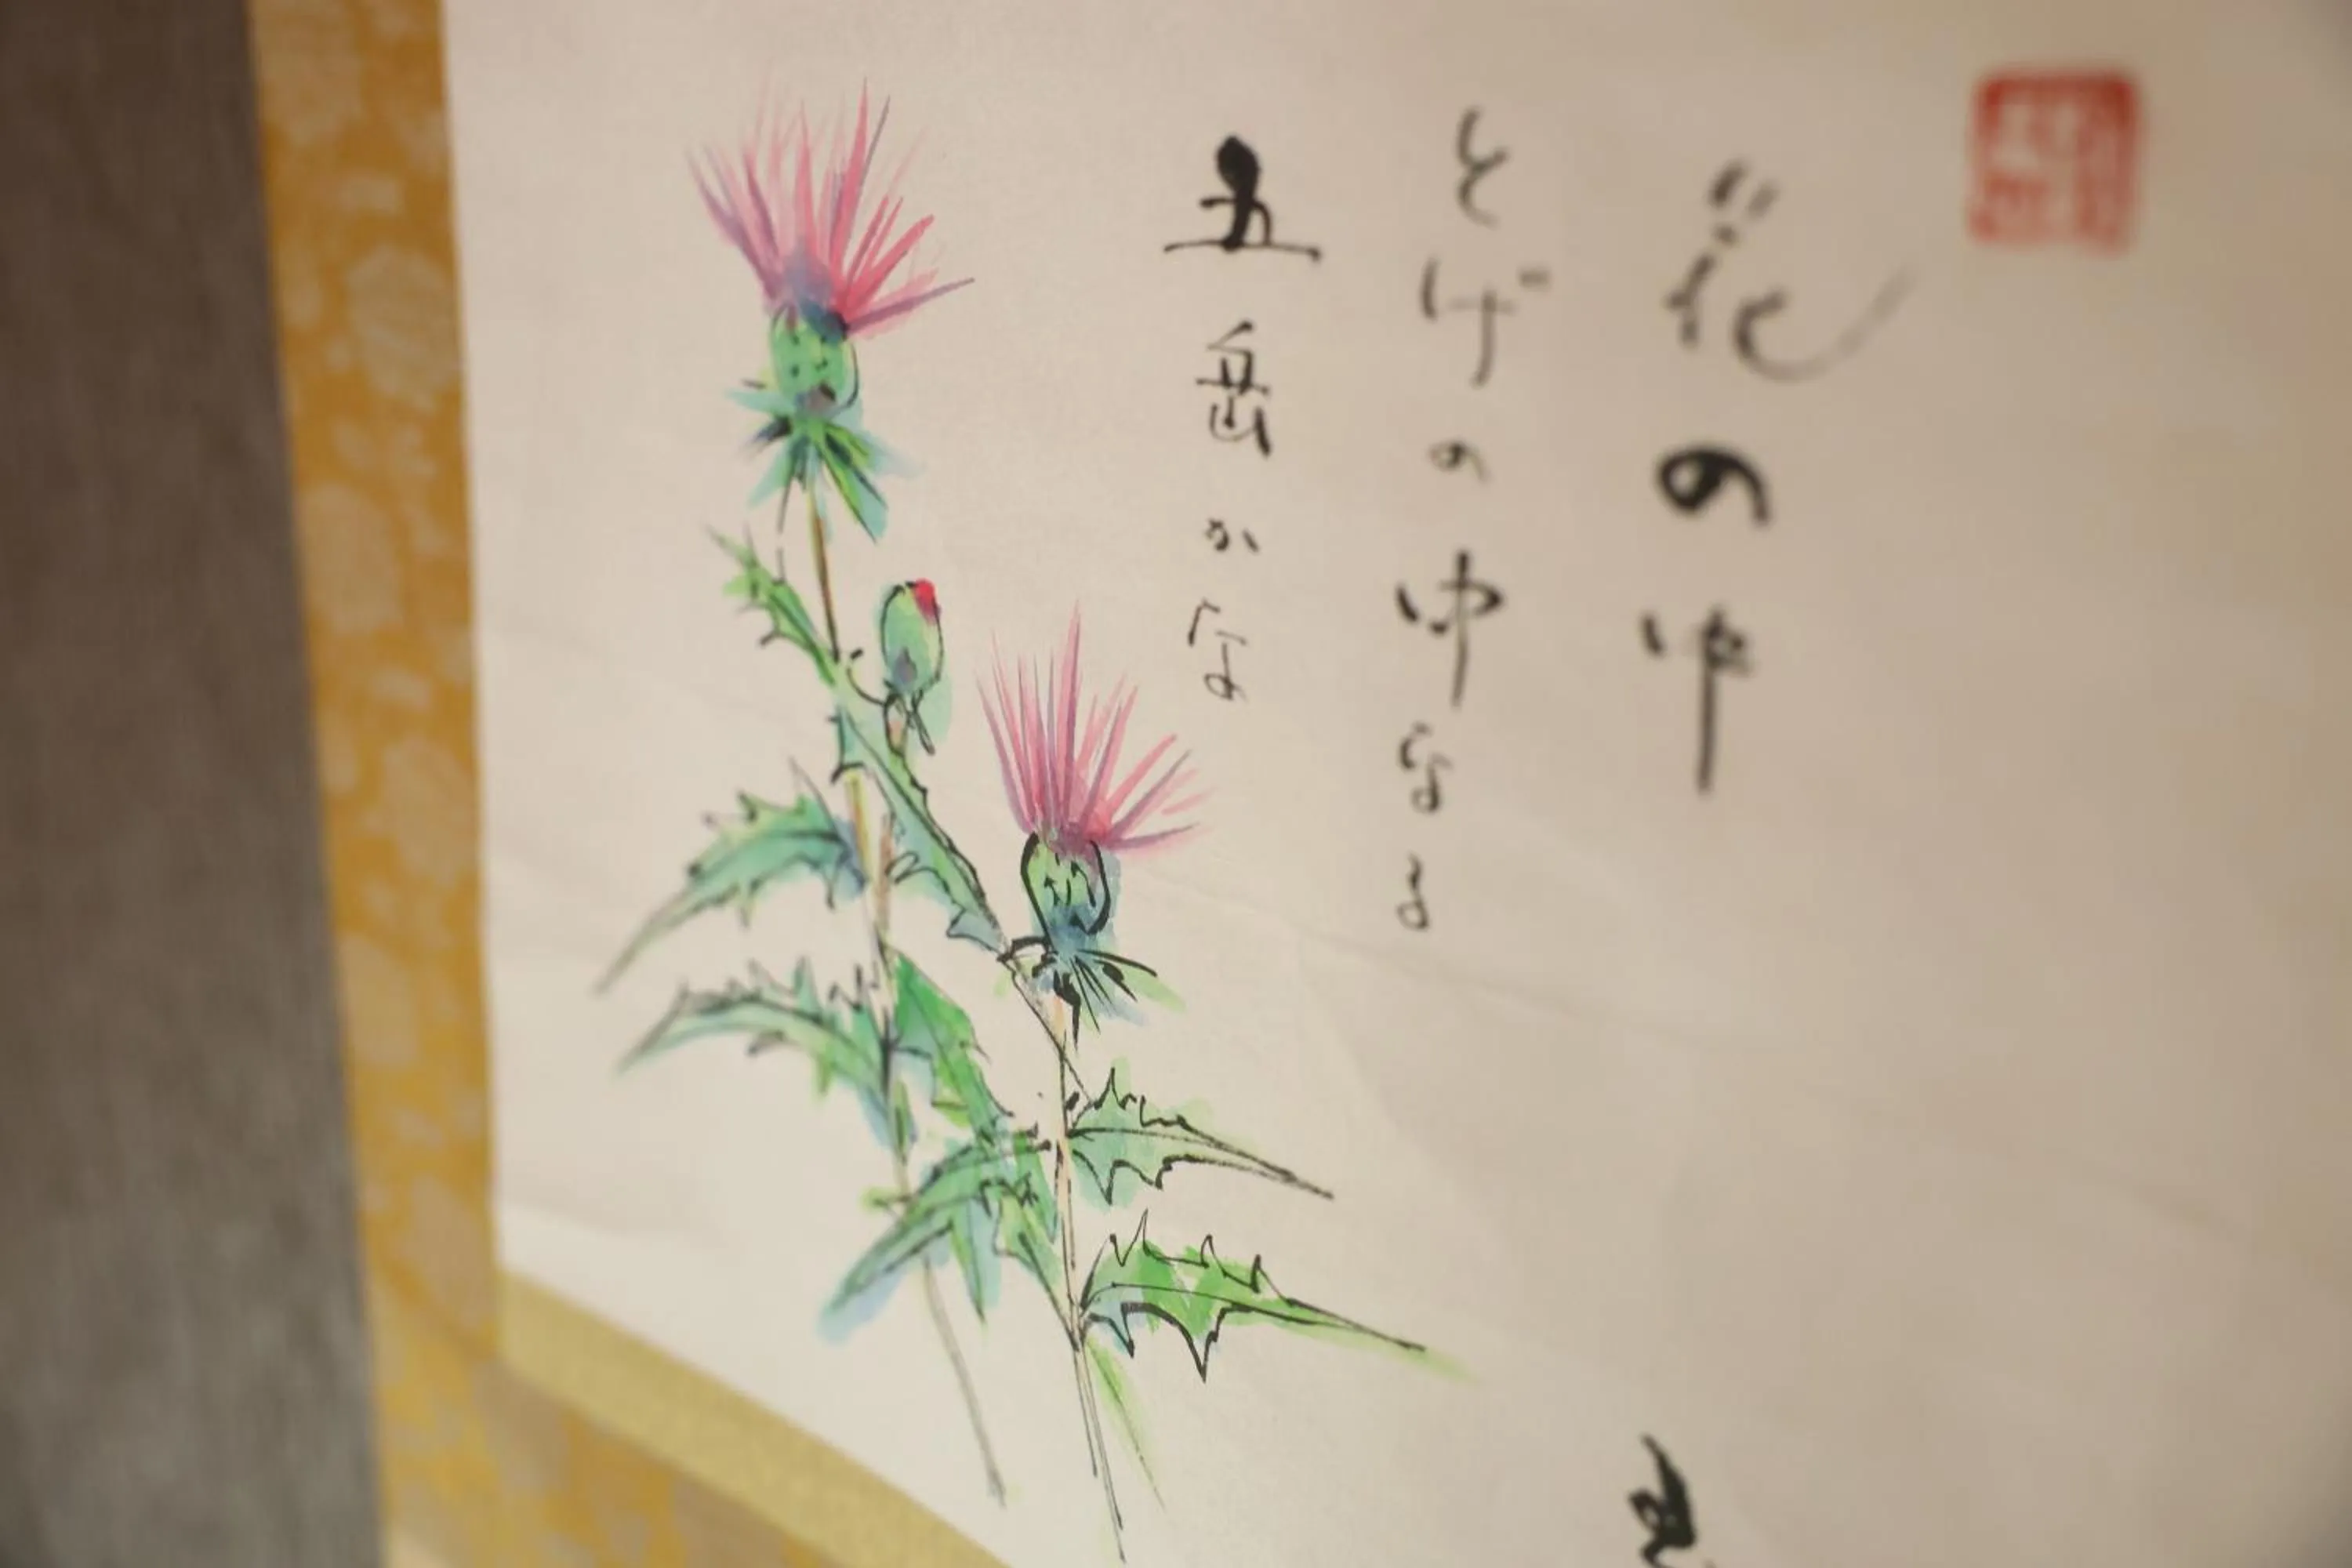 花の中
とげの中なる
五岳かな